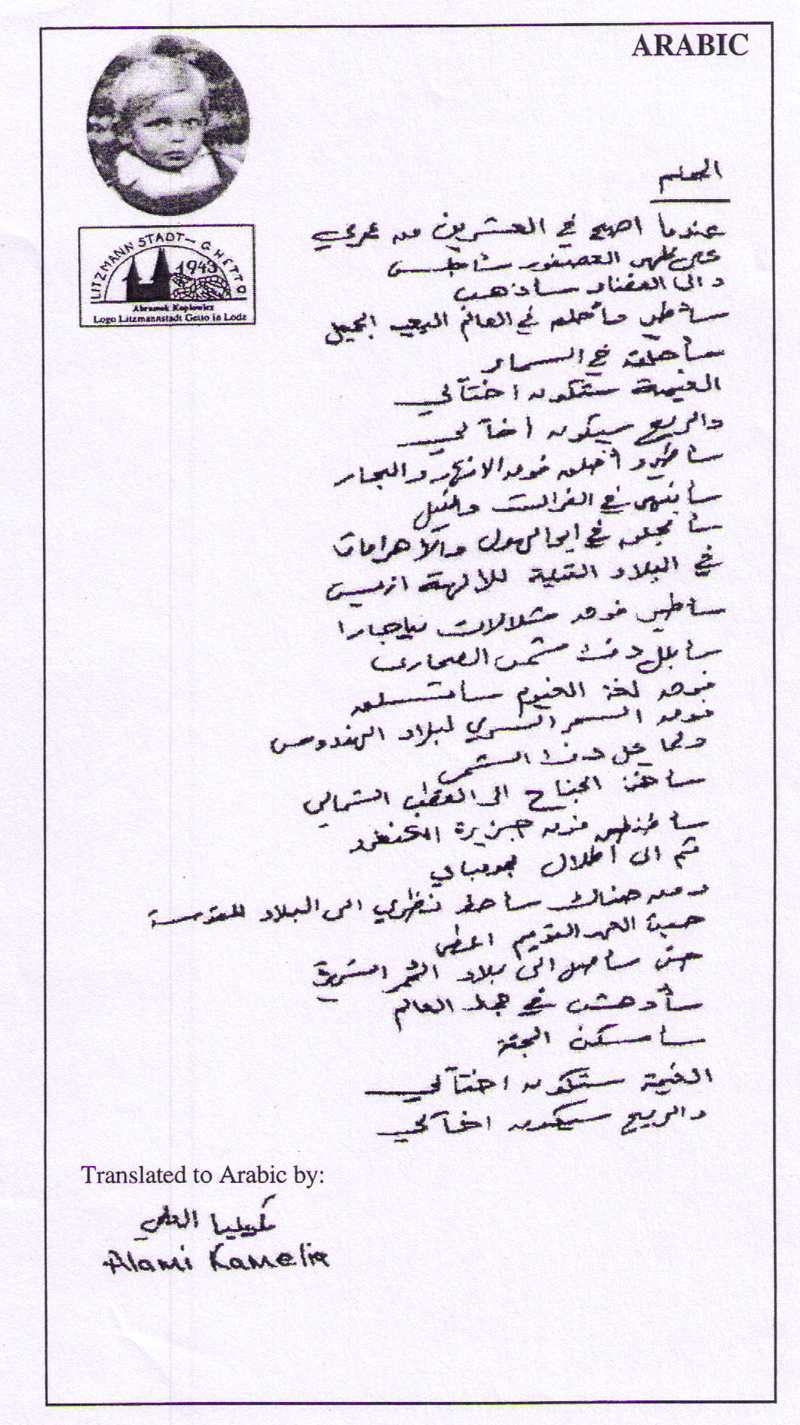 ARABIC
LITZMANN STADT-GHETTO
1943
Abramek Koplowicz
Logo Litzmannstadt Getto in Lodz
الحلم
عندما اصبح في العشرين من عمري
على ظهر العصفور سأجلس
والى الفضاء سأذهب
سأطير سأحلق في العالم البعيد الجميل
سأحلق في السماء
الغيمة ستكون اختاً لي
والريح سيكون أخاً لي
سأطير و أحلق فوق الانهار والبحار
في الفرات والنيل
في ابو الهول والأهرامات
في البلاد للآلهة ازيس
سأطير فوق شلالات نياجارا
شمس الصحارى
فوق الغيوم
فوق السحر السري لبلاد الهندوس
دفئ الشمس
الجناح الى القطب الشمالي
فوق جزيرة الكنغرو
ثم الى أطلال بومباي
ومن هناك سأحط نظري الى البلاد المقدسة
حيث العهد القديم اعطي
حتى سأصل الى بلاد الشهيرة
سأدهش في جمال العالم
سأسكن الجنة
الغيمة ستكون اختاً لي
والريح سيكون اخاً لي
Translated to Arabic by:
كميليا العلمي
Alami Kamelia